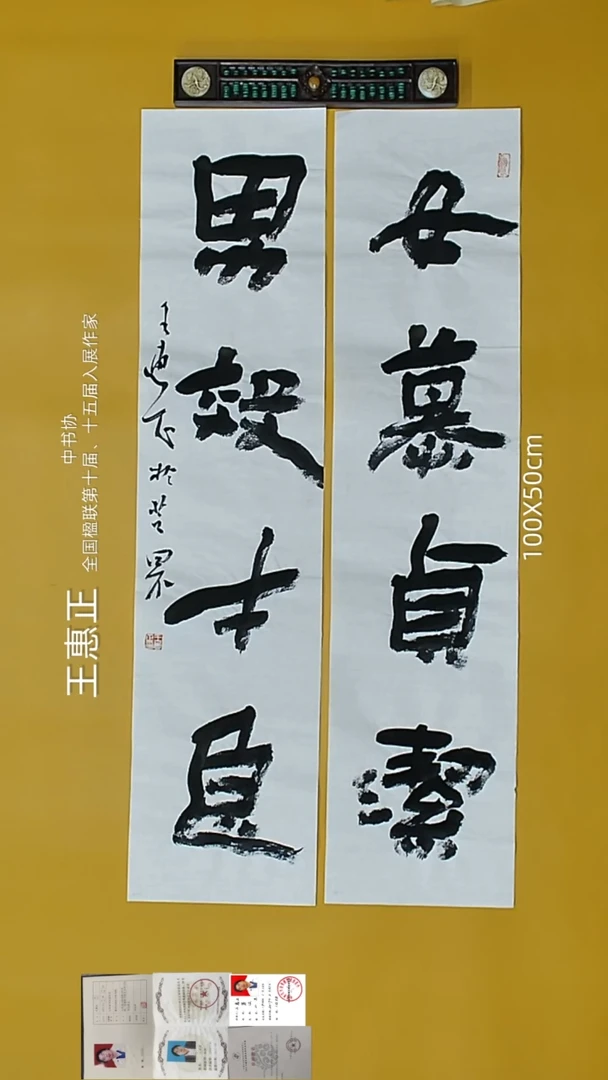 女慕貞潔
男效才良
王惠正於
中书协
全国楹联第十届、十五届入展作家
王惠正
100X50cm